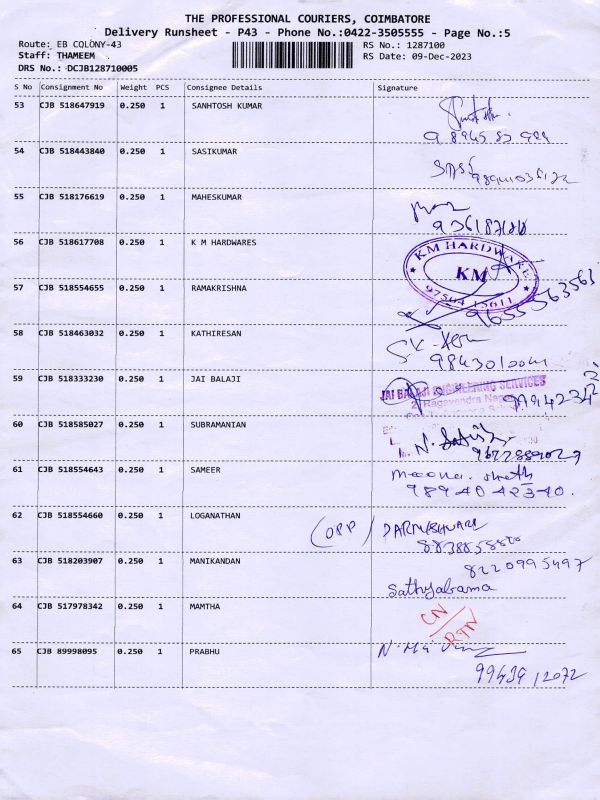 THE PROFESSIONAL COURIERS, COIMBATORE
Delivery Runsheet - P43 - Phone No.:0422-3505555 - Page No.:5
Route: EB COLONY-43 RS No.: 1287100
Staff: THAMEEM RS Date: 09-Dec-2023
DRS No.: DCJB128710005
S No Consignment No Weight PCS Consignee Details Signature
53 CJB 518647919 0.250 1 SANHTOSH KUMAR
54 CJB 518443840 0.250 1 SASIKUMAR
55 CJB 518176619 0.250 1 MAHESKUMAR
56 CJB 518617708 0.250 1 K M HARDWARES
KM HARDWARE
KM
57 CJB 518554655 0.250 1 RAMAKRISHNA
9655563563
58 CJB 518463032 0.250 1 KATHIRESAN
59 CJB 518333230 0.250 1 JAI BALAJI
JAI BALAJI ENGINEERING SERVICES
60 CJB 518585027 0.250 1 SUBRAMANIAN
61 CJB 518554643 0.250 1 SAMEER
9894042340.
62 CJB 518554660 0.250 1 LOGANATHAN
(OPP)
63 CJB 518203907 0.250 1 MANIKANDAN
8220995497
Sathyabama
64 CJB 517978342 0.250 1 MAMTHA
CN/RTN
65 CJB 89998095 0.250 1 PRABHU
9943912072